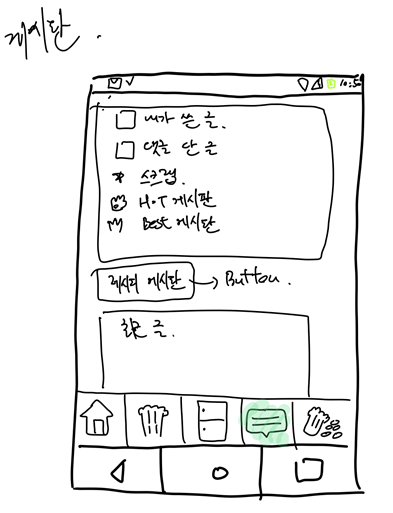 게시판.
10:50
내가 쓴 글.
댓글 단 글
스크랩.
HOT 게시판
Best 게시판
레시피 게시판 → Button.
최근 글.